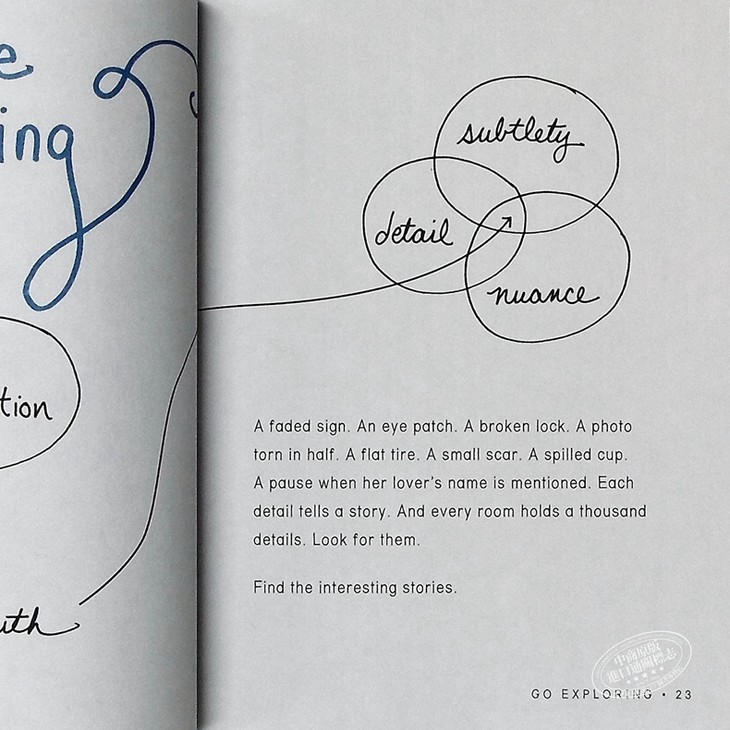 e
ing
tion
uth
subtlety
detail
nuance
A faded sign. An eye patch. A broken lock. A photo
torn in half. A flat tire. A small scar. A spilled cup.
A pause when her lover's name is mentioned. Each
detail tells a story. And every room holds a thousand
details. Look for them.
Find the interesting stories.
中商原版
進口通圖標志
GO EXPLORING • 23